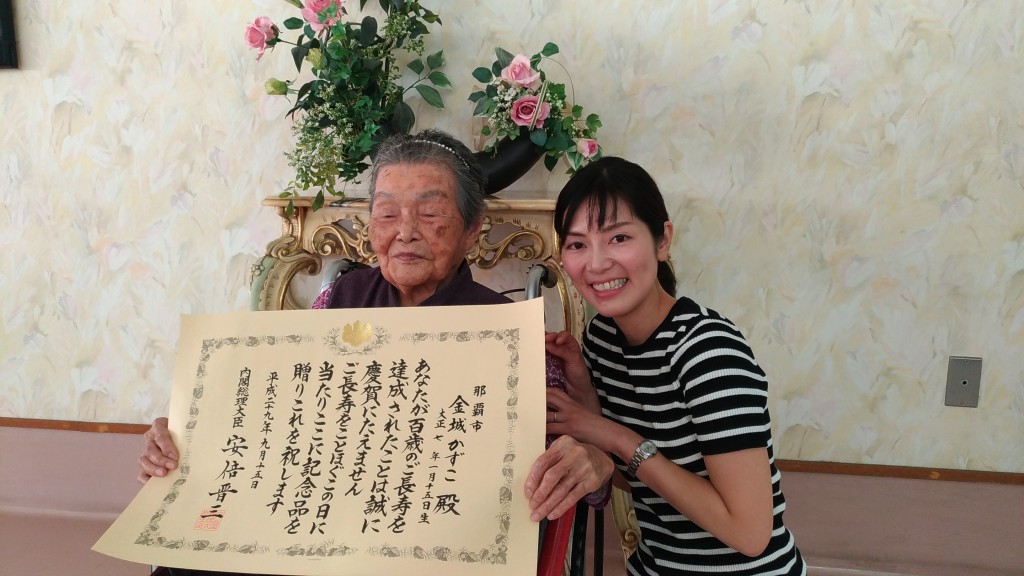 那覇市
金城 かずこ 殿
大正七 年 一月十五日生
あなたが百歳のご長寿を
達成されたことは誠に
慶賀にたえません
ご長寿をことほぐこの日に
当たりここに記念品を
贈りこれを祝します
平成二十九年九月十五日
内閣総理大臣 安倍晋三